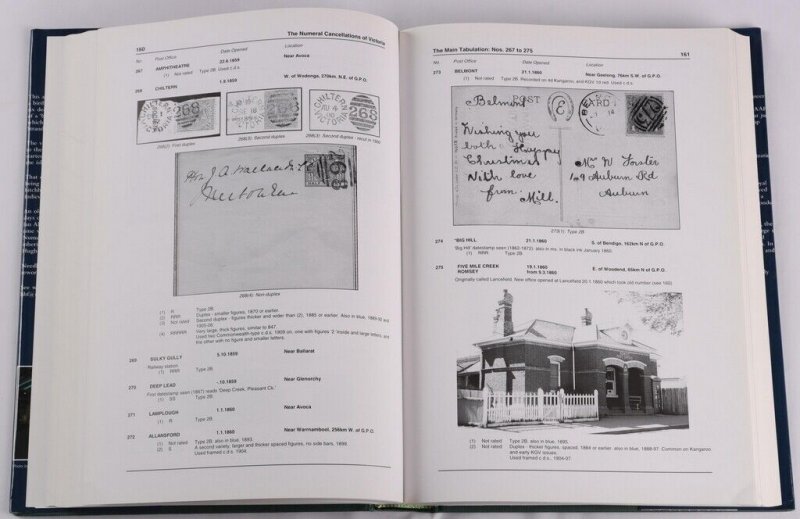 160
The Numeral Cancellations of Victoria
No. Post Office Date Opened Location
267 AMPHITHEATRE 22.8.1859 Near Avoca
(1) Not rated Type 2B. Used c.d.s.
268 CHILTERN 1.9.1859 W. of Wodonga, 270km. N.E. of G.P.O.
CHILTERN
VICTORIA
268
268
CHILTERN
VICTORIA
268
268(2) First duplex
268(3) Second duplex
268(3) Second duplex - Recut in 1900
268
268(4) Non-duplex
(1) R Type 2B.
(2) RRR Duplex - smaller figures, 1870 or earlier.
(3) Not rated Second duplex - figures thicker and wider than (2), 1885 or earlier. Also in blue, 1889-92 and
1905-06.
(4) RRRRR Very large, thick figures, similar to 847.
Used two Commonwealth-type c.d.s. 1909 on, one with figures '2' inside and large letters, and
the other with no figure and smaller letters.
269 SULKY GULLY 5.10.1859 Near Ballarat
Railway station
(1) RRR Type 2B.
270 DEEP LEAD -.10.1859 Near Glenorchy
First datestamp seen (1867) reads 'Deep Creek, Pleasant Ck.'
(1) SS Type 2B.
271 LAMPLOUGH 1.1.1860 Near Avoca
(1) R Type 2B.
272 ALLANSFORD 1.1.1860 Near Warrnambool, 256km W. of G.P.O.
(1) Not rated Type 2B. also in blue, 1893.
(2) S A second variety, larger and thicker spaced figures, no side bars, 1899.
Used framed c.d.s. 1904.
The Main Tabulation: Nos. 267 to 275
161
No. Post Office Date Opened Location
273 BELMONT 21.1.1860 Near Geelong, 76km S.W. of G.P.O.
(1) Not rated Type 2B. Recorded on 4d Kangaroo, and KGV 1d red. Used c.d.s.
POST CARD
Belmont
Wishing you
both a Happy
Christmas
With love
from Mill.
Mrs W Forster
149 Auburn Rd
Auburn
273(1) Type 2B
274 'BIG HILL' 21.1.1860 S. of Bendigo, 162km N of G.P.O.
'Big Hill' datestamp seen (1862-1873) also in ms. in black ink January 1860.
(1) RRR Type 2B.
275 FIVE MILE CREEK 19.1.1860 E. of Woodend, 65km N of G.P.O.
ROMSEY from 9.3.1860
Originally called Lancefield. New office opened at Lancefield 20.1.1860 which took old number (see 160).
(1) Not rated Type 2B. also in blue, 1895.
(2) Not rated Duplex - thicker figures, spaced, 1884 or earlier. also in blue, 1888-97. Common on Kangaroo
and early KGV issues.
Used framed c.d.s., 1904-07.